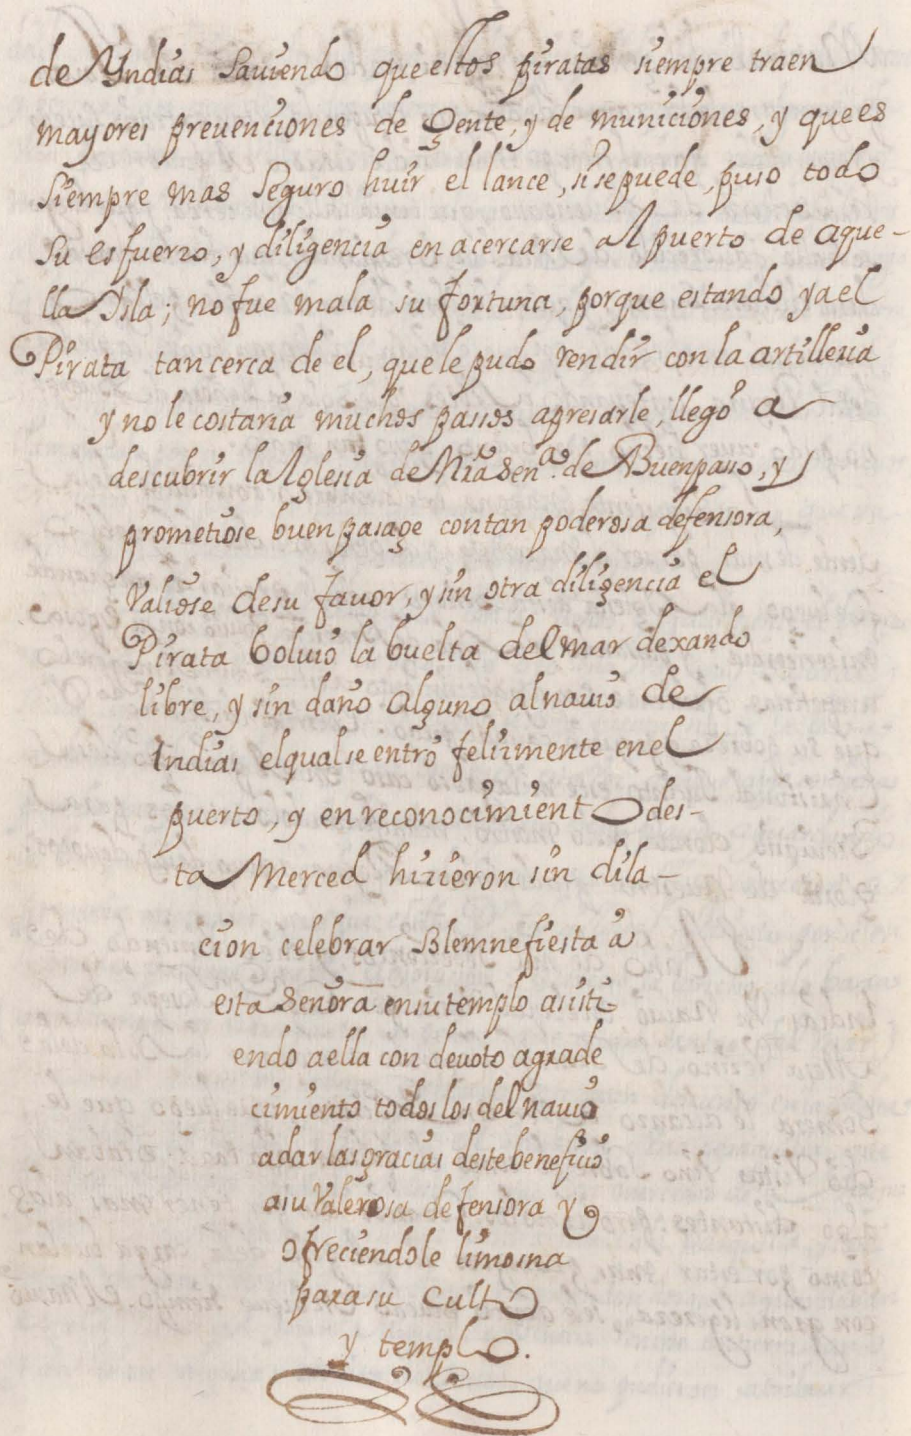 de Yndias Saviendo que estos piratas siempre traen
mayores prevenciones de Gente, y de municiones, y que es
Siempre mas Seguro huir el lance, si se puede, puso todo
Su esfuerzo, y diligencia en acercarse al puerto de aque-
lla Isla; no fue mala su fortuna, porque estando ya el
Pirata tan cerca de el, que le pudo rendir con la artilleria
y no le costaria muchos passos apresarle, llegó a
descubrir la Iglesia de Nrâ Senª. de Buenpaso, y
prometiose buen pasage con tan poderosa defensora,
Valiose de su favor, y sin otra diligencia el
Pirata bolvio la buelta del mar dexando
libre, y sin daño alguno al navio de
Indias el qual se entro felizmente en el
puerto, y en reconocimiento des-
ta Merced hizieron sin dila-
cion celebrar Solemne fiesta a
esta Señora en su templo asisti-
endo a ella con devoto agrade
cimiento todos los del navio
a dar las gracias deste beneficio
a su Valerosa defensora y
ofreciendole limosna
para su culto
y templo.